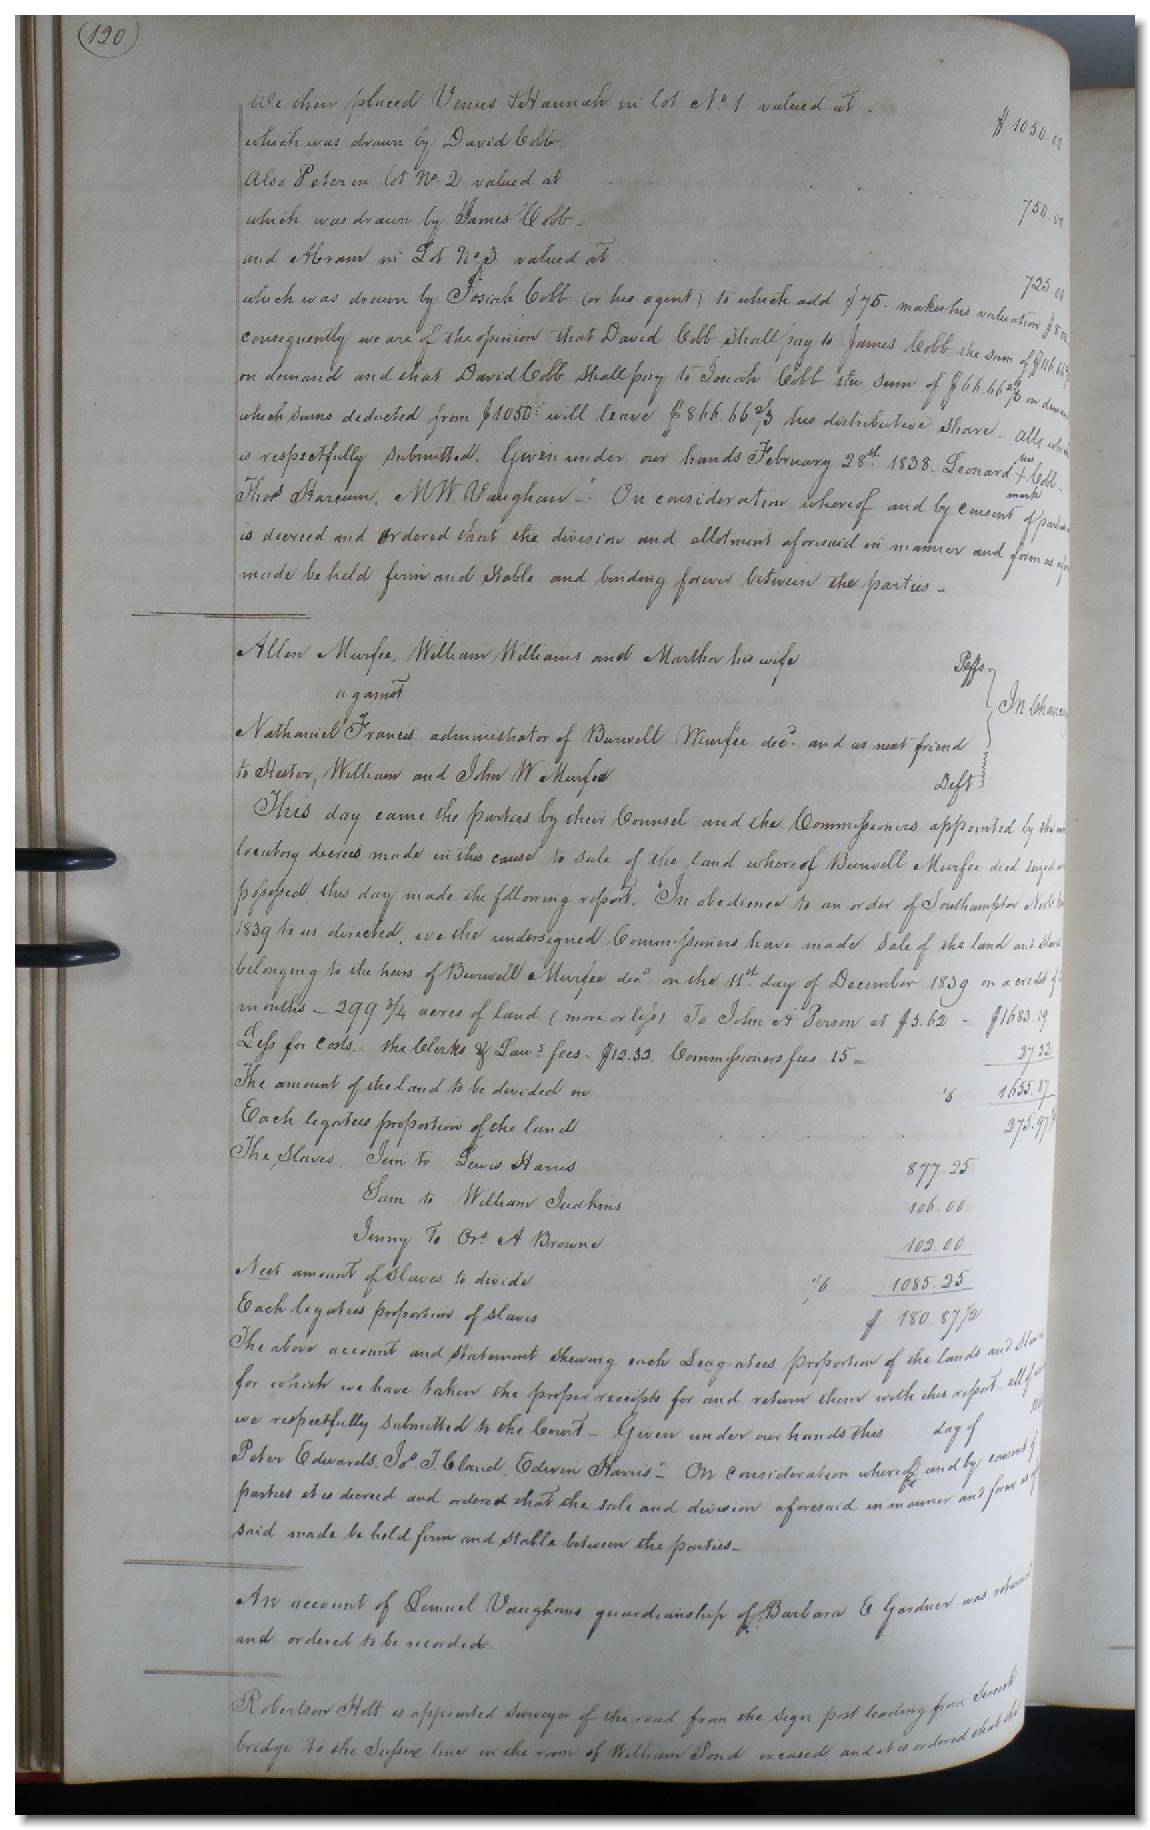 120
We then placed Venus & Hannah in lot No. 1 valued at $1050.00
which was drawn by David Cobb.
Also Peter in lot No. 2 valued at 750.00
which was drawn by James Cobb.
and Abram in Lot No. 3 valued at 725.00
which was drawn by Josiah Cobb (or his agent) to which add $75. makes his valuation $800
consequently we are of the opinion that David Cobb shall pay to James Cobb the sum of $116.66
on demand and that David Cobb shall pay to Josiah Cobb the sum of $66.66 2/3 on
which sums deducted from $1050. will leave $866.66 2/3 his distributive share. All
is respectfully submitted. Given under our hands February 28th. 1838. Leonard his + mark Cobb
Thos. M W Vaughan." On consideration whereof and by consent of
is decreed and ordered that the division and allotment aforesaid in manner and form as
made be held firm and stable and binding forever between the parties.
Allen Murfee, William Williams and Martha his wife Plffs
against In Chancery
Nathaniel Francis administrator of Burwell Murfee decd. and as next friend
to Hester, William and John W Murfee Deft
This day came the parties by their Counsel and the Commissioners appointed by the
locutory decrees made in this cause to sale of the land whereof Burwell Murfee died seized
possessed, this day made the following report. "In obedience to an order of Southampton
1839 to us directed, we the undersigned Commissioners have made sale of the land and
belonging to the heirs of Burwell Murfee decd. on the 11th. day of December 1839 on a credit of
months - 299 3/4 acres of land (more or less) To John A Person at $5.62 - $1683.19
Less for costs - the Clerks & Law. fees - $12.32. Commissioners fees 15 - 27.32
The amount of the land to be divided in 1/6 1655.87
Each legatees proportion of the land 275.97
The Slaves. Jim to Lewis Harris 877.25
Sam to William Judkins 106.00
Jinny To A Browne 102.00
Neet amount of slaves to divide 1/6 1085.25
Each legatees proportion of slaves $ 180.87 1/2
The above account and statement shewing each Leagatees proportion of the lands and
for which we have taken the proper receipts for and return them with this report. all of
we respectfully submitted to the Court - Given under our hands this day of
Peter Edwards, Edwin Harris" - On consideration whereof and by consent of
parties it is decreed and ordered that the sale and division aforesaid in manner and form as
said made be held firm and stable between the parties -
An account of Lemuel Vaughans guardianship of Barbara E Gardner was returned
and ordered to be recorded.
Robertson Holt is appointed Surveyor of the road from the sign post leading from
bridge to the Sussex line in the room of William Pond excused, and it is ordered that the